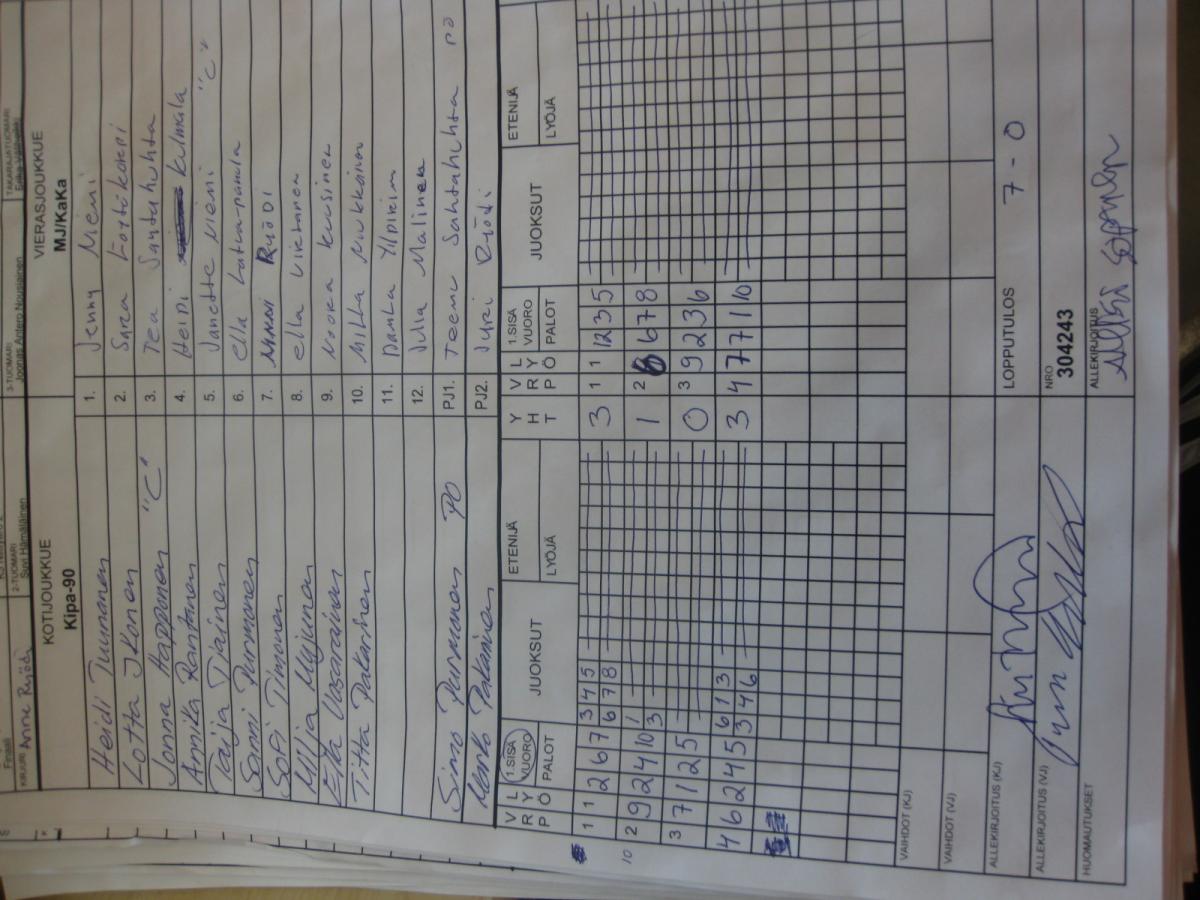 KIRJURI Anne Ryödi
2-TUOMARI
3-TUOMARI
Joonas Antero Nousiainen
TAKARAJATUOMARI
KOTIJOUKKUE
Kipa-90
VIERASJOUKKUE
MJ/KaKa
Heidi Tuunanen 1. Jenny Niemi
Lotta Ikonen 2. Sara
Jonna Happonen "C" 3. Tea Santahuhta
Annika Rantanen 4. Heini Kulmala
Taija Tiainen 5. Janette Niemi "C"
Sanni Purmonen 6. Ella Latva-panula
Sofi Timonen 7. Ninni Ryödi
Milja Mujunen 8. Ella
9. Noora Kuusinen
Titta Pakarinen 10. Milka Nukkainen
11.
12. Julia Malinen
Simo Purmonen PJ1. Teemu Santahuhta
Pakarinen PJ2. Jyri Ryödi
V R P
L Y Ö
1.SISÄ VUORO
PALOT
JUOKSUT
ETENIJÄ
LYÖJÄ
Y H T
V R P
L Y Ö
1.SISÄ VUORO
PALOT
JUOKSUT
ETENIJÄ
LYÖJÄ
1 1 2 6 7 3 4 5 3 1 1 1 2 3 5
6 7 8
2 9 2 4 10 1 1 2 6 6 7 8
10 3
3 7 1 2 5 0 3 9 2 3 6
4 6 2 4 5 6 1 3 3 4 7 7 7 10
3 4 6
VAIHDOT (KJ)
VAIHDOT (VJ)
ALLEKIRJOITUS (KJ)
LOPPUTULOS 7 - 0
ALLEKIRJOITUS (VJ)
NRO
304243
HUOMAUTUKSET
ALLEKIRJOITUS